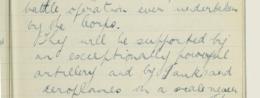 battle operation ever undertaken
by the Corps.
They will be supported by
an exceptionally powerful
artillery and by tanks and
aeroplanes on a scale never